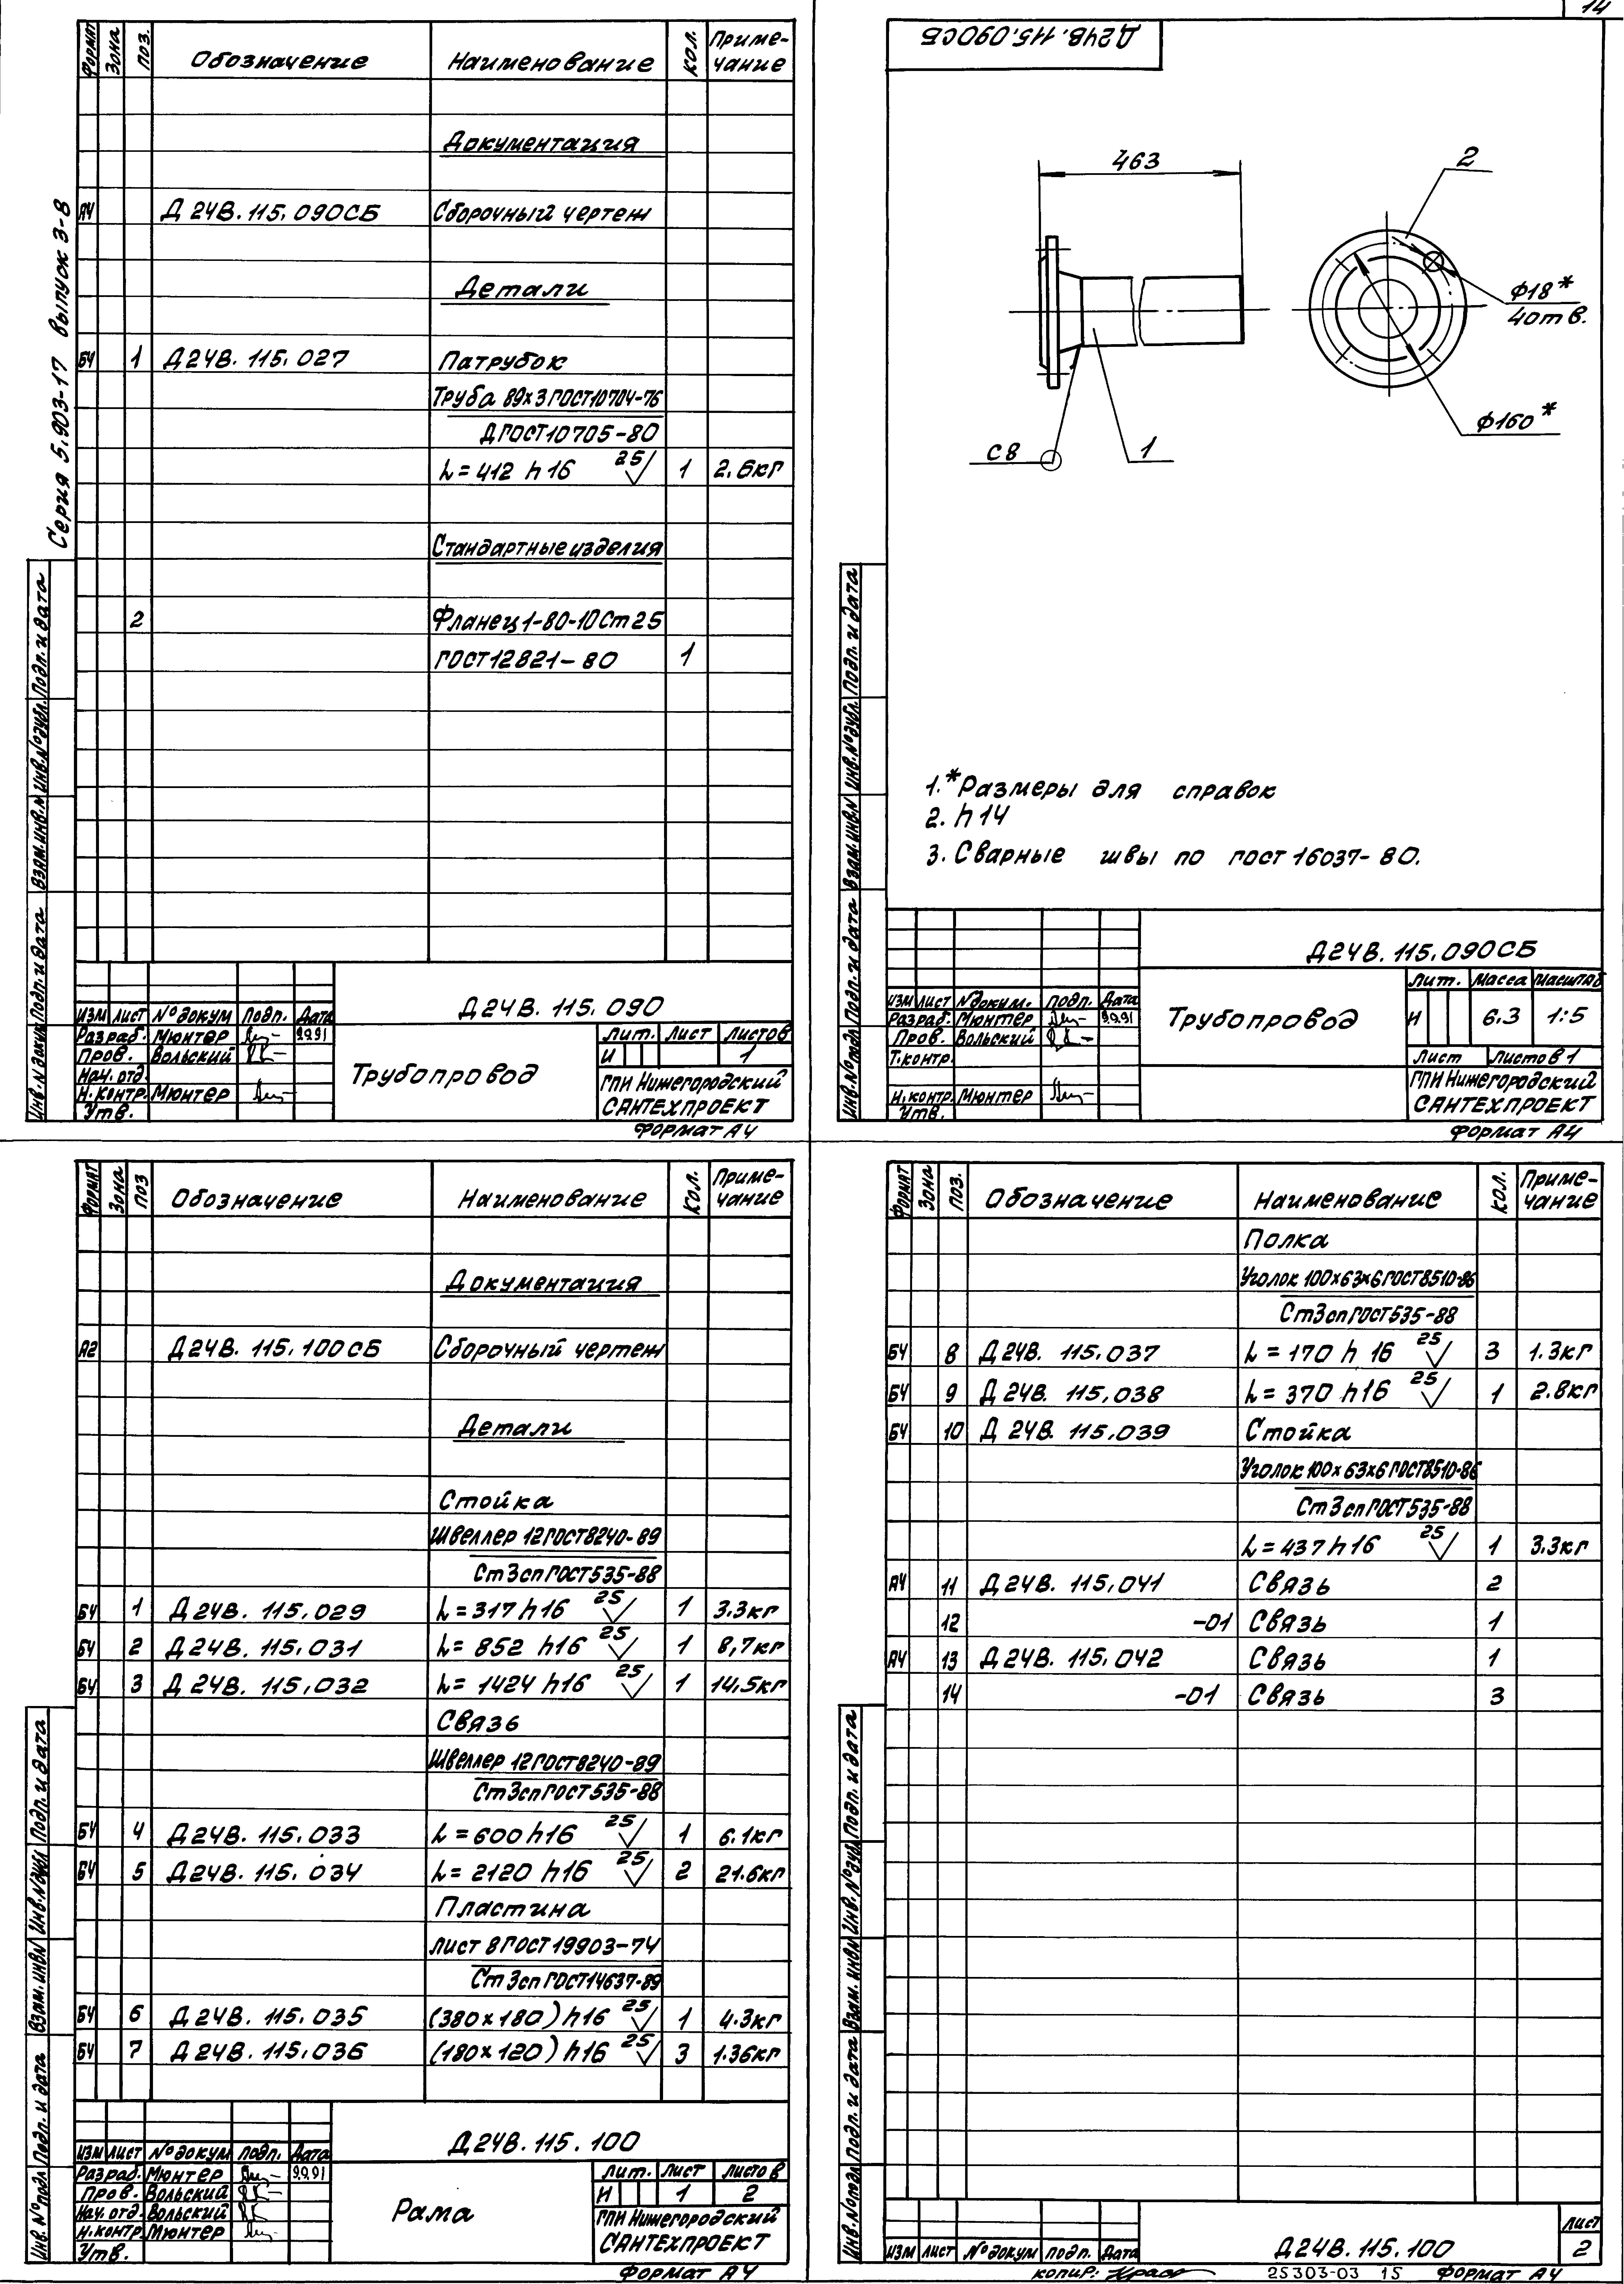 14
Серия 5.903-17 Выпуск 3-8
Формат Зона Поз. Обозначение Наименование Кол. Приме-
чание
Документация
А4 Д 24В. 115. 090СБ Сборочный чертеж
Детали
БЧ 1 Д24В. 115. 027 Патрубок
Труба 89х3 ГОСТ10704-76
Д ГОСТ10705-80
L=412 h16 25 1 2.6кг
Стандартные изделия
2 Фланец 1-80-10 Ст25
ГОСТ12821-80 1
Инв. N подл. Подп. и дата Взам. инв. N Инв. N° дубл. Подп. и дата
Д24В. 115. 090
Изм Лист N° докум Подп. Дата
Разраб. Мюнтер 9.9.91
Пров. Вольский
Нач. отд.
Н. контр. Мюнтер
Утв.
Трубопровод
Лит. Лист Листов
И 1
ГПИ Нижегородский
САНТЕХПРОЕКТ
Формат А4
Д24В. 115. 090СБ
463
2
Ф18*
4отв.
Ф160*
С8
1
1.*Размеры для справок
2. h14
3. Сварные швы по ГОСТ 16037-80.
Инв. N° подл Подп. и дата Взам. инв. N Инв. N° дубл. Подп. и дата
Д24В. 115. 090СБ
Изм Лист N° докум. Подп. Дата
Разраб. Мюнтер 9.9.91
Пров. Вольский
Т.контр.
Н.контр. Мюнтер
Утв.
Трубопровод
Лит. Масса Масштаб
И 6.3 1:5
Лист Листов 1
ГПИ Нижегородский
САНТЕХПРОЕКТ
Формат А4
Формат Зона Поз Обозначение Наименование Кол. Приме-
чание
Документация
А2 Д24В. 115. 100СБ Сборочный чертеж
Детали
Стойка
Швеллер 12 ГОСТ8240-89
Ст3сп ГОСТ535-88
БЧ 1 Д24В. 115. 029 L=317 h16 25 1 3.3кг
БЧ 2 Д24В. 115. 031 L= 852 h16 25 1 8,7кг
БЧ 3 Д 24В. 115. 032 L= 1424 h16 25 1 14,5кг
Связь
Швеллер 12 ГОСТ8240-89
Ст3сп ГОСТ535-88
БЧ 4 Д24В. 115. 033 L=600 h16 25 1 6.1кг
БЧ 5 Д24В. 115. 034 L= 2120 h16 25 2 21.6кг
Пластина
Лист 8 ГОСТ 19903-74
Ст3сп ГОСТ14637-89
БЧ 6 Д 24В. 115. 035 (380х180) h16 25 1 4.3кг
БЧ 7 Д 24В. 115. 036 (180х120) h16 25 3 1.36кг
Инв. N° подл Подп. и дата Взам. инв N Инв. N° дубл Подп. и дата
Д24В. 115. 100
Изм Лист N° докум Подп. Дата
Разраб. Мюнтер 9.9.91
Пров. Вольский
Нач. отд. Вольский
Н. контр. Мюнтер
Утв.
Рама
Лит. Лист Листов
И 1 2
ГПИ Нижегородский
САНТЕХПРОЕКТ
Формат А4
Формат Зона Поз. Обозначение Наименование Кол. Приме-
чание
Полка
Уголок 100х63х6 ГОСТ8510-86
Ст3сп ГОСТ535-88
БЧ 8 Д 24В. 115. 037 L = 170 h 16 25 3 1.3кг
БЧ 9 Д 24В. 115. 038 L= 370 h16 25 1 2.8кг
БЧ 10 Д 24В. 115. 039 Стойка
Уголок 100х63х6 ГОСТ8510-86
Ст3сп ГОСТ535-88
L=437 h16 25 1 3.3кг
А4 11 Д24В. 115. 041 Связь 2
12 -01 Связь 1
А4 13 Д24В. 115. 042 Связь 1
14 -01 Связь 3
Инв. N° подл Подп. и дата Взам. инв N Инв. N° дубл Подп. и дата
Изм Лист N° докум Подп. Дата
Д24В. 115. 100
Лист
2
Копир.: 25303-03 15 Формат А4